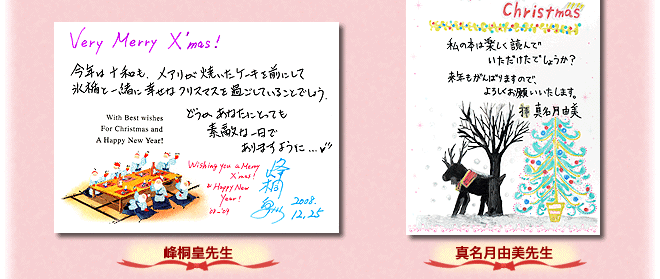 Very Merry X'mas!
今年は十和も、メアリが焼いたケーキを前にして
氷稀と一緒に幸せなクリスマスを過ごしていることでしょう。
どうか あなたにとっても
素敵な一日で
ありますように…
With Best wishes
For Christmas and
A Happy New Year!
Wishing you a Merry
X'mas!
& Happy New
Year!
峰桐
皇
2008.
12.25
峰桐皇先生
Christmas
私の本は楽しく読んで
いただけたでしょうか?
来年もがんばりますので、
よろしくお願いいたします。
真名月由美
真名月由美先生